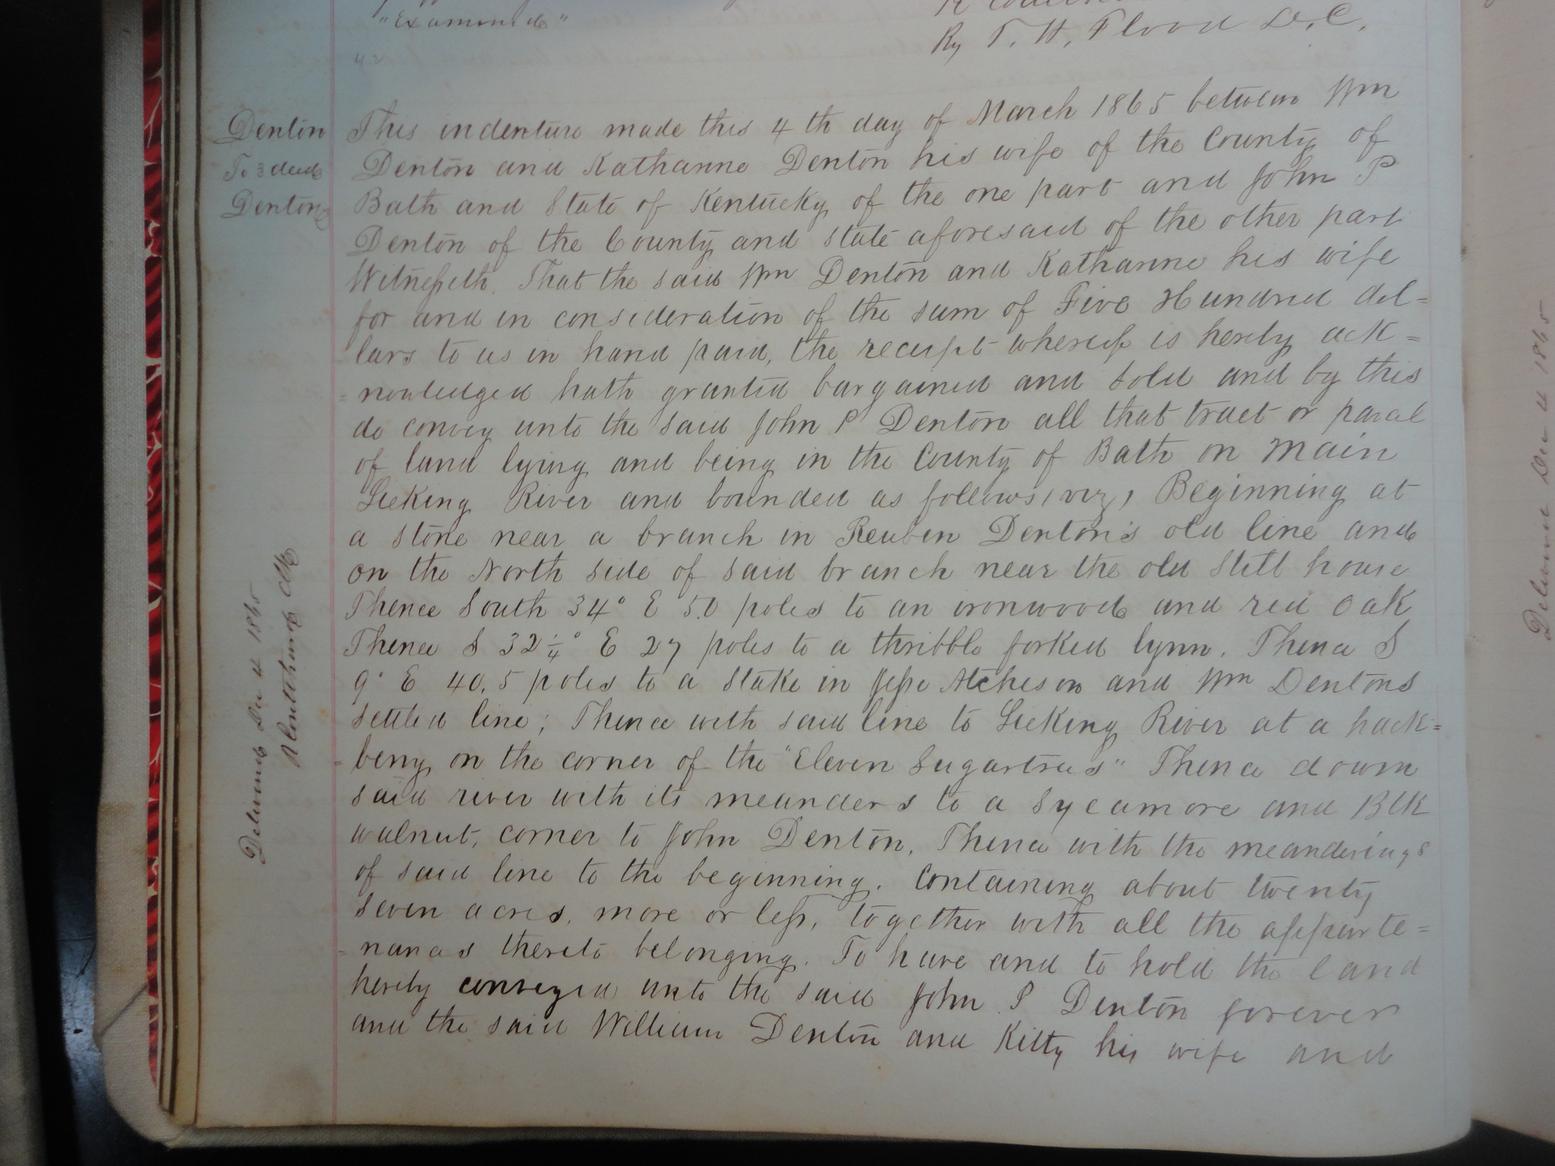 "Examined"
By T. H. Flood D.C.
Denton
To 3 deed
Denton
This indenture made this 4th day of March 1865 between Wm
Denton and Katharine Denton his wife of the County of
Bath and State of Kentucky of the one part and John P
Denton of the County and State aforesaid of the other part
Witnesseth. That the said Wm Denton and Katharine his wife
for and in consideration of the sum of Five Hundred dol=
lars to us in hand paid, the receipt whereof is hereby ack=
=nowledged hath granted bargained and sold and by this
do convey unto the said John P Denton all that tract or parcel
of land lying and being in the County of Bath on Main
Licking River and bounded as follows, viz, Beginning at
a stone near a branch in Reuben Denton's old line and
on the North side of said branch near the old Still house
Thence South 34° E 50 poles to an ironwood and red oak
Thence S 32 1/4° E 27 poles to a thribble forked lynn. Thence S
9° E 40.5 poles to a Stake in Jesse Atcheson and Wm Dentons
settled line; Thence with said line to Licking River at a hack=
=berry on the corner of the "Eleven Sugartrees" Thence down
said river with its meanders to a Sycamore and Blk
walnut, corner to John Denton, Thence with the meanderings
of said line to the beginning. Containing about twenty
seven acres, more or less, together with all the appurte=
=nances thereto belonging. To have and to hold the land
hereby conveyed unto the said John P Denton forever
and the said William Denton and Kitty his wife and
Delivered Dec 4 1865
Clk
Delivered Dec 4 1865